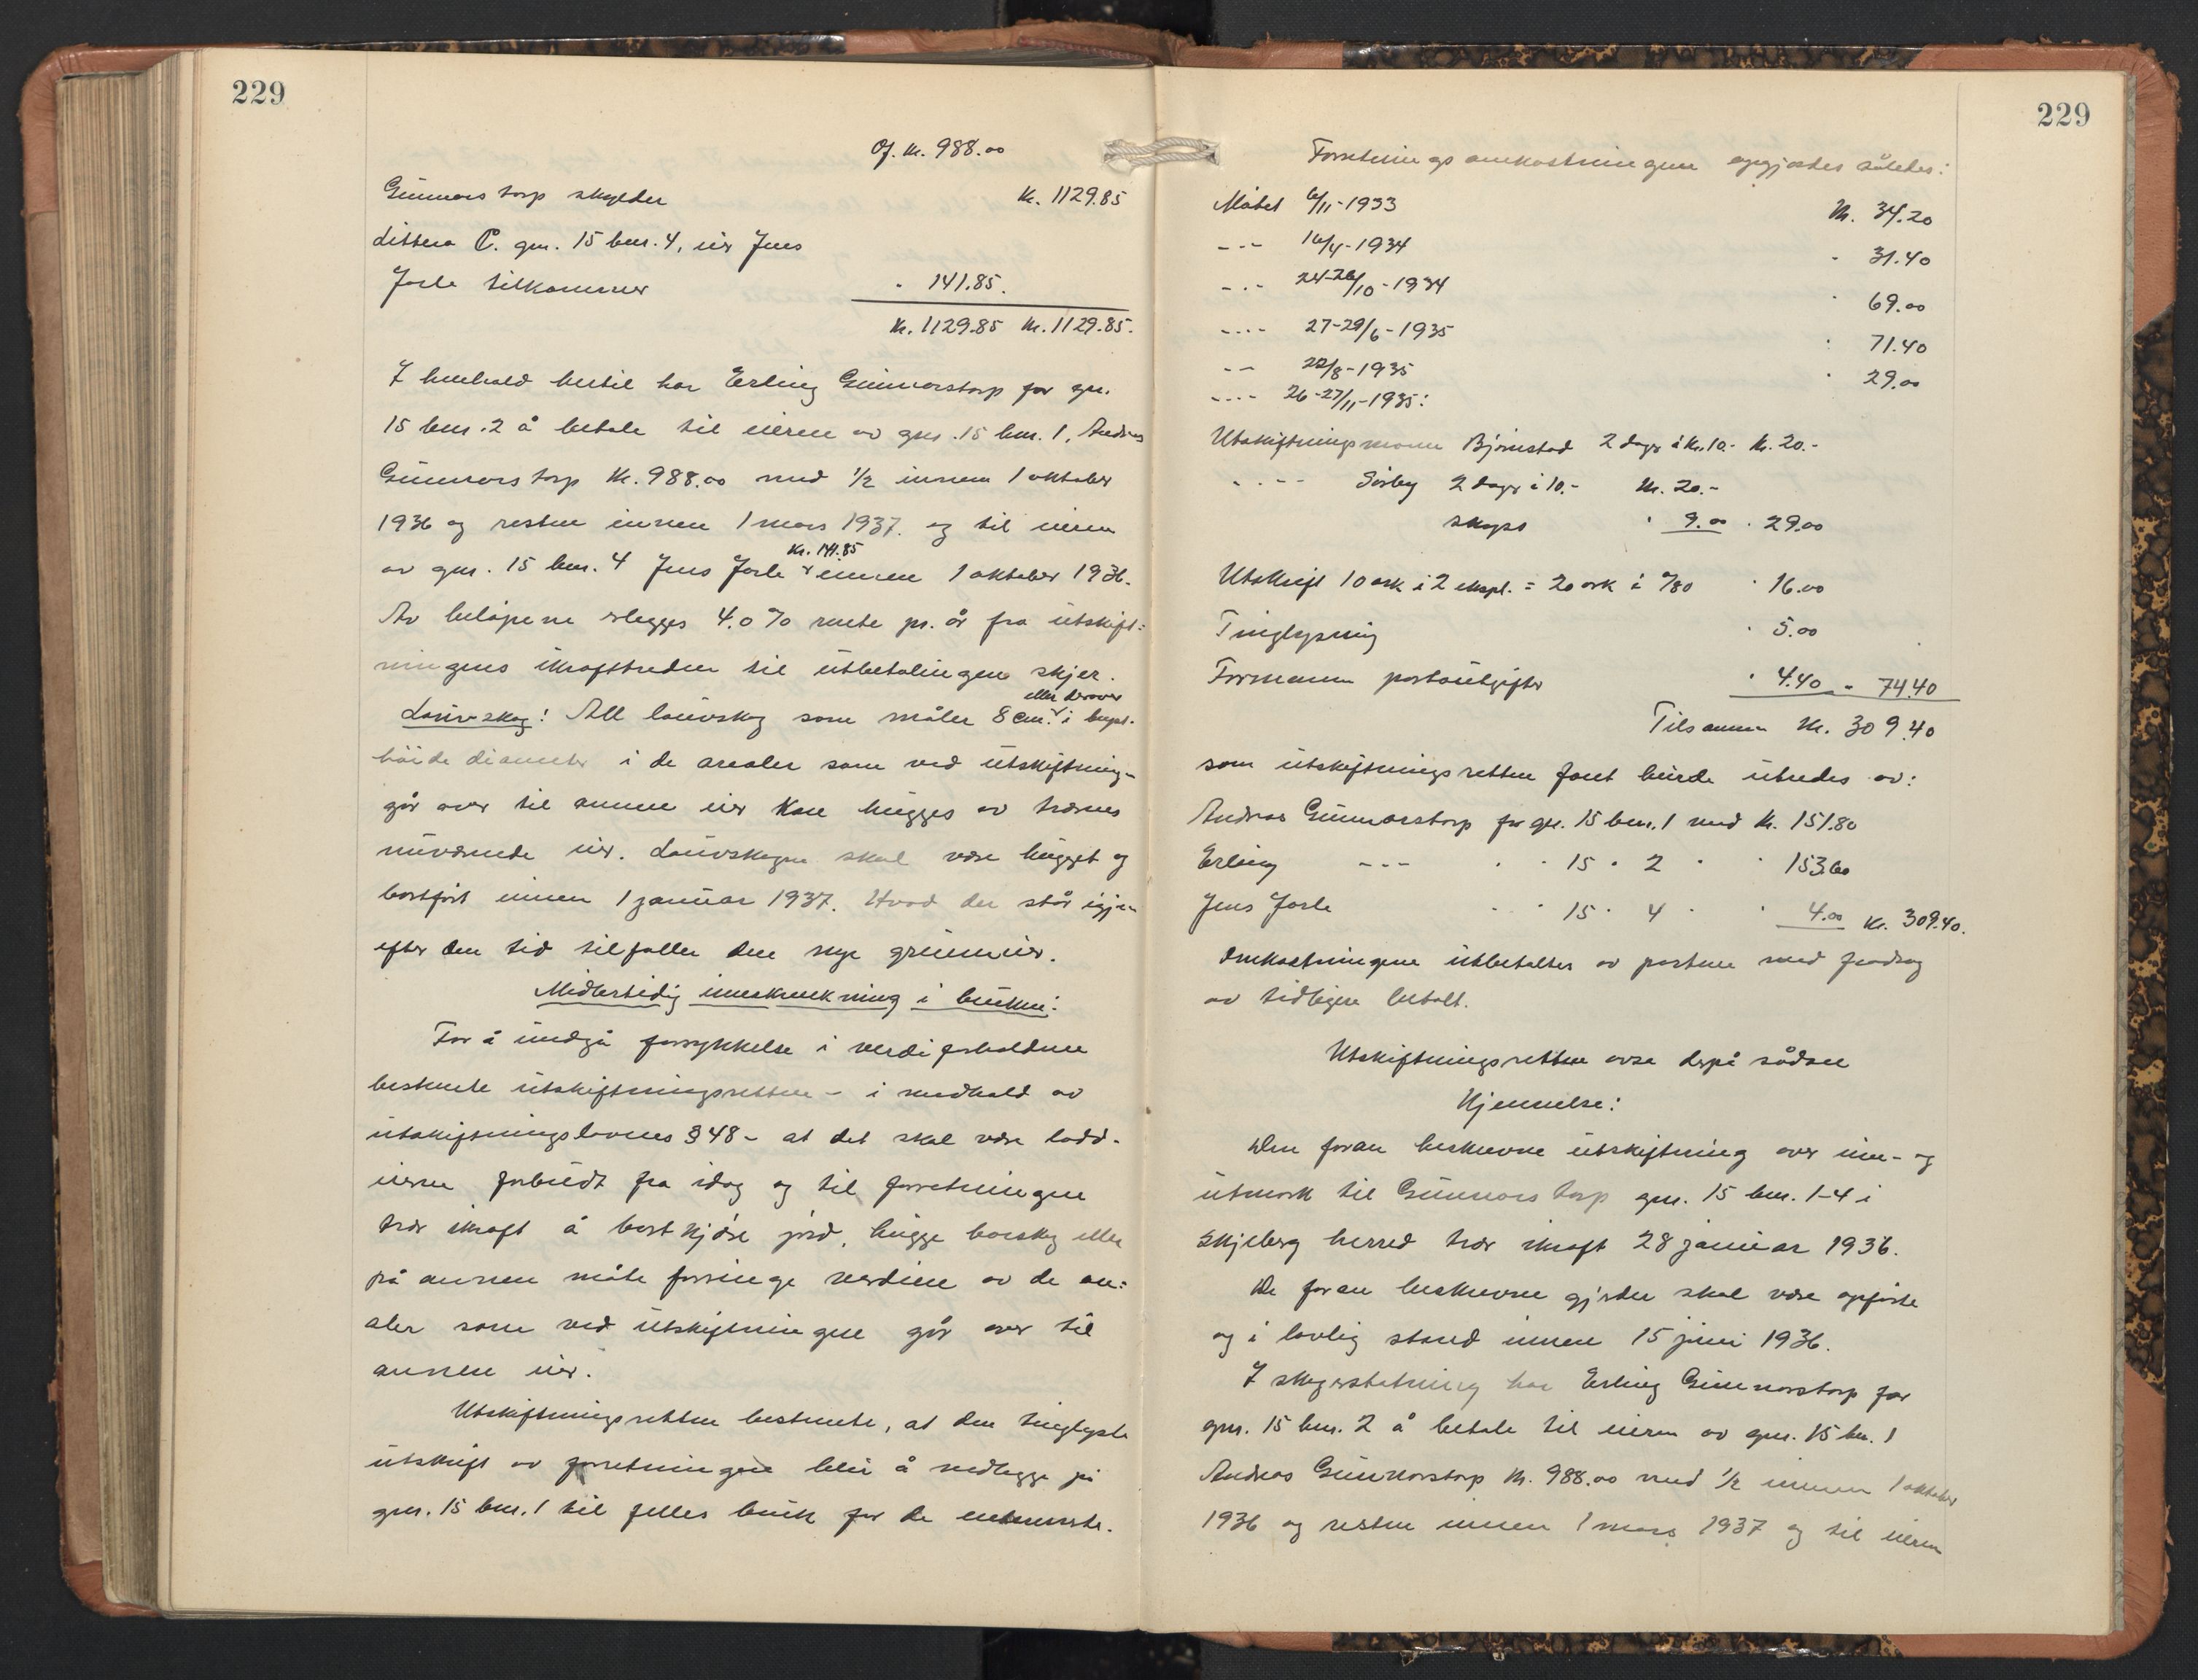 229
Of. kr. 988.00
Gunnarstorp skylder kr. 1129.85
Littera C. gnr. 15 bnr. 4, eier Jens
Jarle tilkommer " 141.85.
kr. 1129.85 kr. 1129.85.
I henhold hertil har Erling Gunnarstorp for gnr.
15 bnr. 2 å betale til eieren av gnr. 15 bnr. 1, Andreas
Gunnarstorp kr. 988.00 med 1/2 innen 1 oktober
1936 og resten innen 1 mars 1937. og til eieren
av gnr. 15 bnr. 4 Jens Jarle kr. 141.85 innen 1 oktober 1936.
Av beløpene erlegges 4.0 % rente pr. år fra utskift=
ningens ikrafttreden til utbetalingen skjer.
Lauvskog: All lauvskog som måler 8 cm. eller derover i bryst-
höide diameter i de arealer som ved utskiftning-
går over til annen eier kan hugges av trærnes
nuværende eier. Lauvskogen skal være hugget og
bortført innen 1 januar 1937. Hvad der står igjen
efter den tid tilfaller den nye grunneier.
Midlertidig innskrenkning i bruken:
For å undgå forrykkelse i verdiforholdene
bestemte utskiftningsretten - i medhold av
utskiftningslovens § 48 - at det skal være lodd-
eierne forbudt fra idag og til forretningen
trær ikraft å bortkjøre jord, hugge barskog eller
på annen måte forringe verdien av de are=
aler som ved utskiftningen går over til
annen eier.
Utskiftningsretten bestemte, at den tinglyste
utskrift av forretningen blir å nedlegge på
gnr. 15 bnr. 1 til felles bruk for de interesserte.
229
Forretningsomkostningene opgjordes således:
Møtet 6/11-1933 kr. 34.20
--- 16/4-1934 " 31.40
--- 24-26/10-1934 " 69.00
---- 27-29/6-1935 " 71.40
-- 22/8-1935 " 29.00
---- 26-27/11-1935:
Utskiftningsmann Bjørnstad 2 dager à kr. 10.- kr. 20.-
---- Sørby 2 dager à 10.- kr. 20.-
skyss " 9.00 " 29.00
Utskrift 10 ark i 2 ekspl. = 20 ark à 0/80 " 16.00
Tinglysning " 5.00
Formannens portoutgifter " 4.40 " 74.40
Tilsammen kr. 309.40
som utskiftningsretten fant burde utredes av:
Andreas Gunnarstorp for gnr. 15 bnr. 1 med kr. 151.80
Erling --- " " 15 " 2 " " 153.60
Jens Jarle " " 15 " 4 " " 4.00 kr. 309.40.
Omkostningene utbetaltes av partene med fradrag
av tidligere betalt.
Utskiftningsretten avsa derpå sådan
Kjennelse:
Den foran beskrevne utskiftning over inn- og
utmark til Gunnarstorp gnr. 15 bnr. 1-4 i
Skjeberg herred trær ikraft 28 januar 1936.
De foran beskrevne gjerder skal være opførte
og i lovlig stand innen 15 juni 1936.
I skogerstatning har Erling Gunnarstorp for
gnr. 15 bnr. 2 å betale til eieren av gnr. 15 bnr. 1
Andreas Gunnarstorp kr. 988.00 med 1/2 innen 1 oktober
1936 og resten innen 1 mars 1937 og til eieren